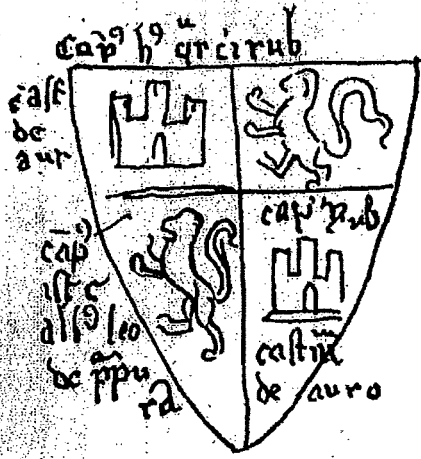 Cāpꝰ hꝰ qrcirub
cast
de
aur
cāpꝰ
ist ē
albꝰ leo
de ppu
ra
capꝰ rub
castrū
de auro